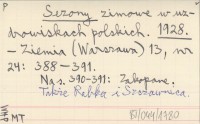 P
Sezony zimowe w uz-
drowiskach polskich. 1928.
- Ziemia (Warszawa) 13, nr
24: 388-391.
Na s. 390-391: Zakopane.
Także Rabka i Szczawnica.
MT